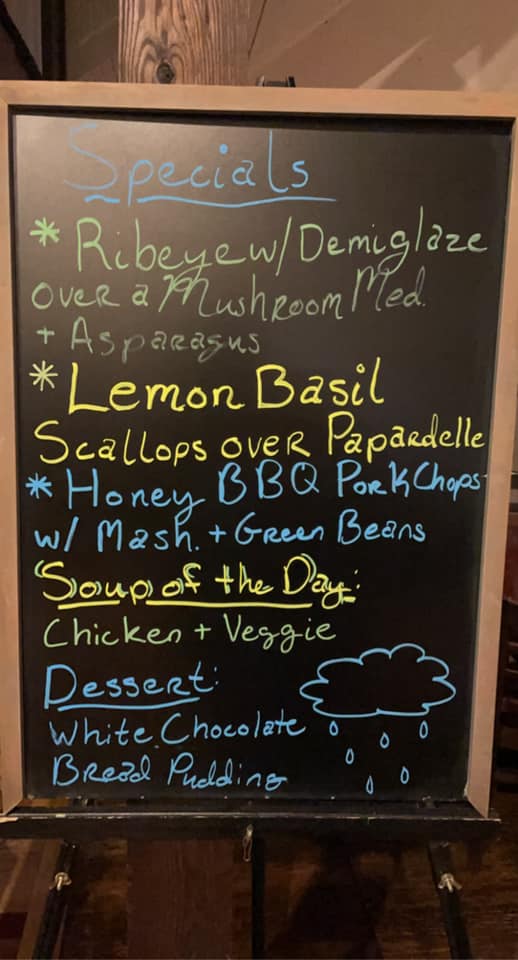 Specials
* Ribeye w/ Demiglaze
over a Mushroom Med.
+ Asparagus
* Lemon Basil
Scallops over Papardelle
* Honey BBQ Pork Chops
w/ Mash. + Green Beans
Soup of the Day:
Chicken + Veggie
Dessert:
White Chocolate
Bread Pudding